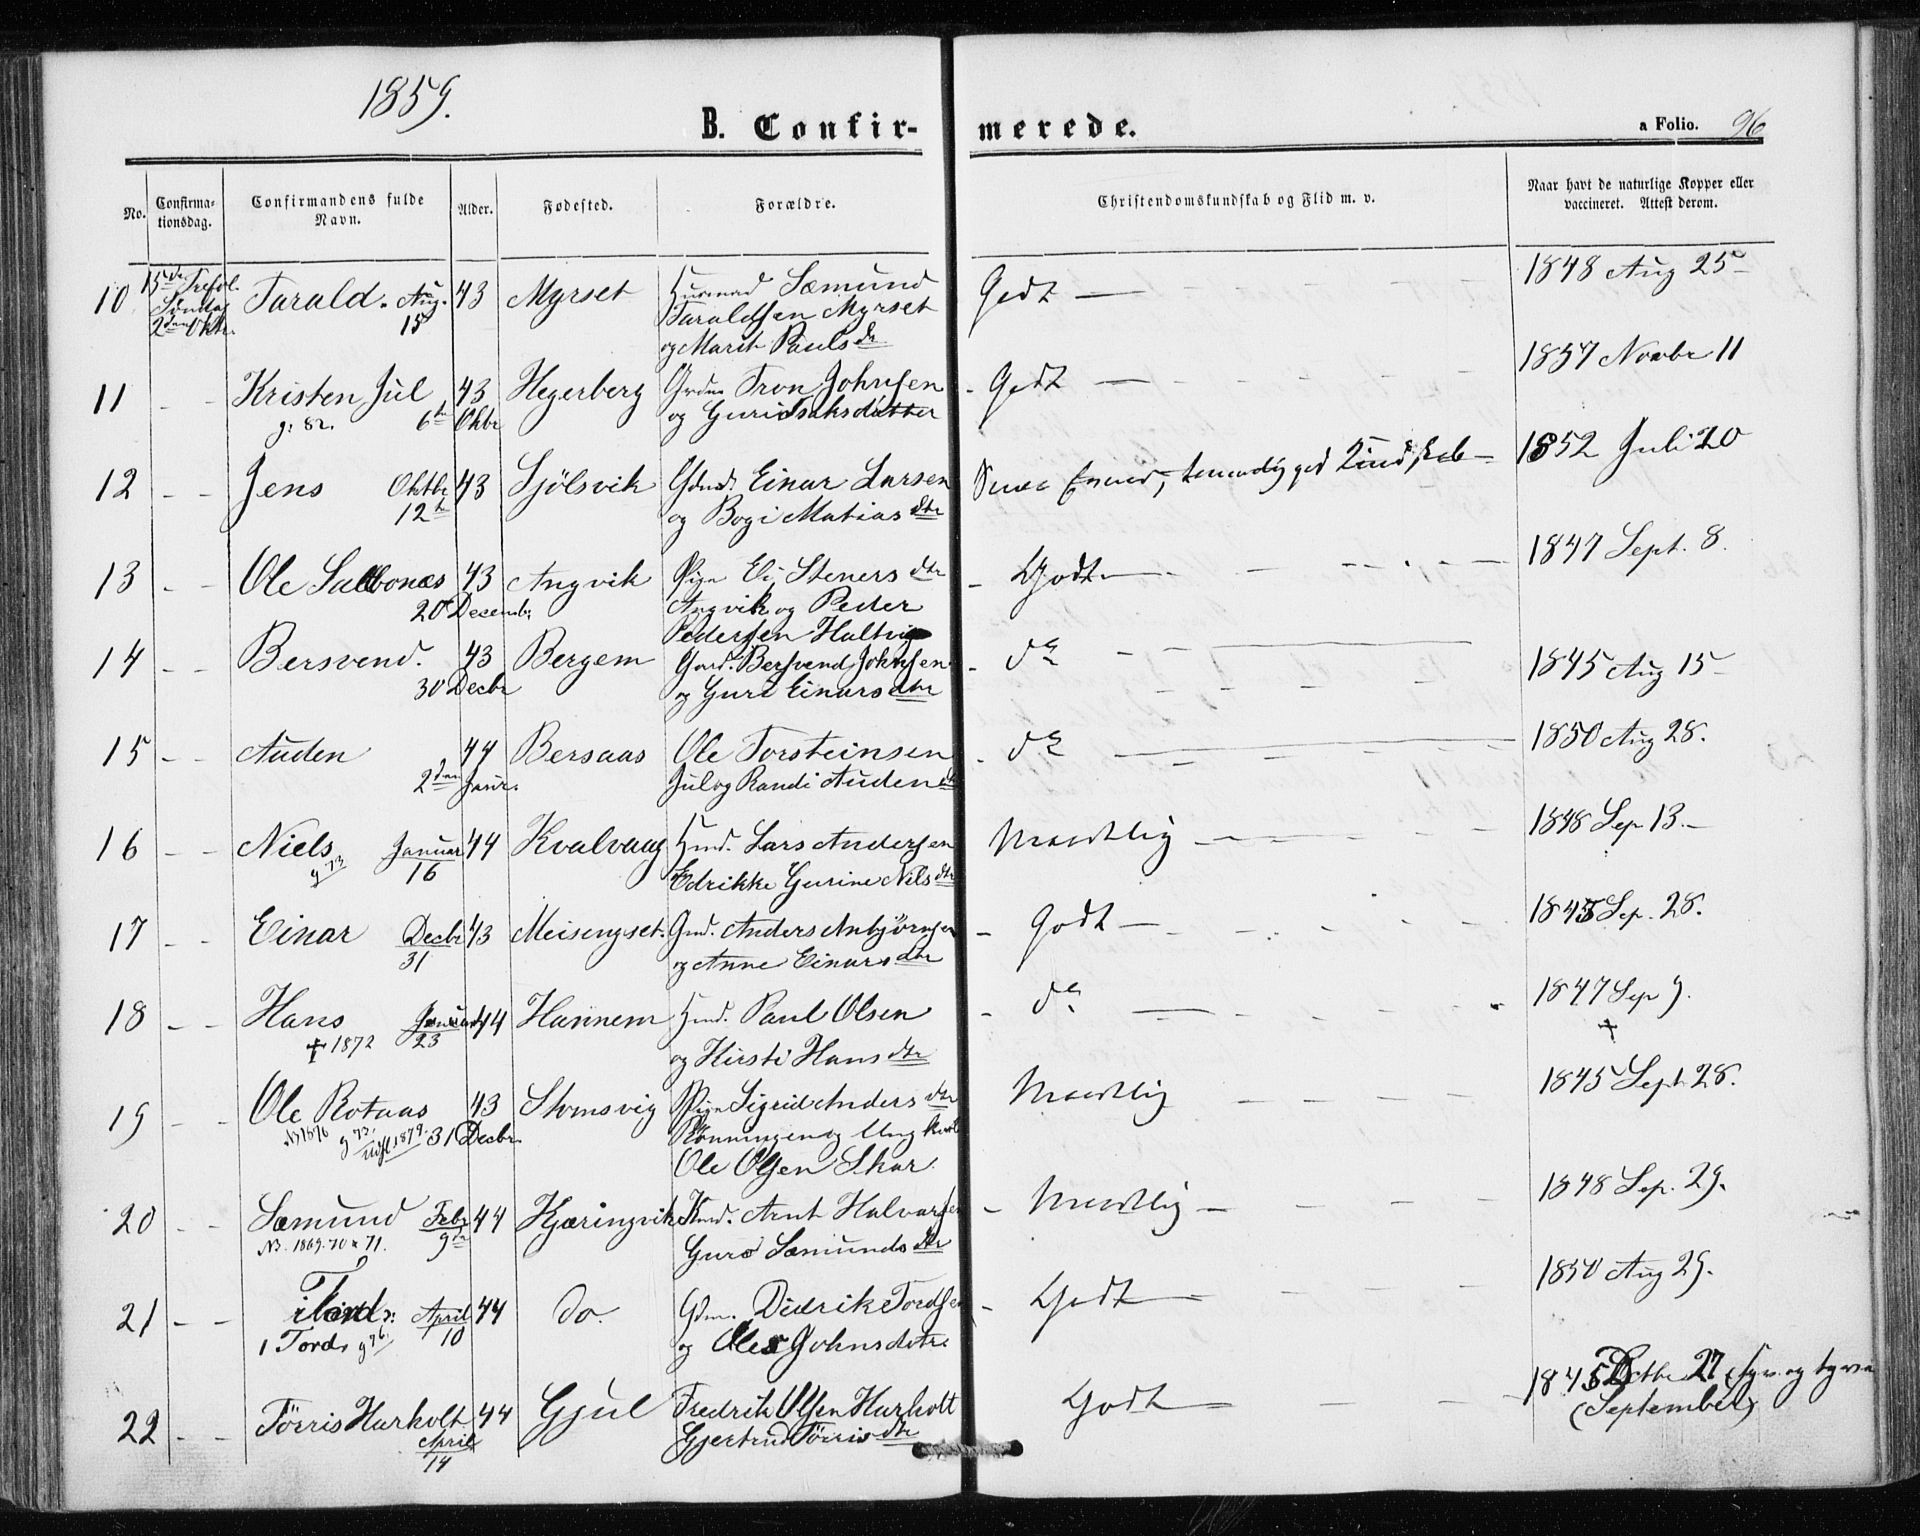 1859.
B. Confir-
merede.
a Folio. 96
No.
Confirma-
tionsdag.
Confirmandens fulde
Navn.
Alder.
Fødested.
Forældre.
Christendomskundskab og Flid m. v.
Naar havt de naturlige Kopper eller
vaccineret. Attest derom.
10 15de Trefol. Søndag 2den Oktr.
Tarald. Aug. 15
43 Myrset
Husmand Sæmund
Taraldsen Myrset
og Marit Pauls dr
Godt
1848 Aug 25
11 - - Kristen Jul 6te
g. 82.
43 Oktbr Hegerberg
Grdm Tron Johnsen
og Guri Isaksdatter
- Godt
1857 Novbr 11
12 - - Jens Oktbr 12te
43 Sjölsvik
Gdmd. Einar Larsen
og Bogi Matias dtr
1852 Juli 20
13 - - Ole Salbonæs
43 20 Decembr Angvik
Pige Eli Steners dtr
Angvik og Peder
Pedersen Haltvig
- Godt
1847 Sept. 8.
14 - - Bersvend.
43 30 Decbr Bergem
Gard. Bersvend Johnsen
og Guri Einars dtr
- do
1845 Aug 15
15 - - Auden
44 2den Janr. Bersaas
Ole Torsteinsen
Jul og Randi Auden dtr
- do
1850 Aug 28.
16 - - Niels Januar 16
g 73
44 Kvalvaag
Hmd. Lars Andersen
Edrikke Gurine Nils dtr
Maadelig
1848 Sep 13.
17 - - Einar Decbr 31
43 Meisengset.
Gmd. Anders Anbjørnsen
og Anne Einars dtr
- Godt
1845 Sep. 28.
18 - - Hans Januar 23
† 1872
44 Hannem
Hmd. Paul Olsen
og Kirsti Hans dtr
- do
1847 Sep 9.
†
19 - - Ole Rotaas
N 1876 g 73. udfl 1879. 31 Decbr.
43 Stomsvig
Pige Sigrid Anders dtr
Rønningen og Ungkarl
Ole Olsen Skar
Maadelig
1845 Sept 28.
20 - - Sæmund Febr 9de
N. 1869. 70 & 71.
44 Kjæringvik
Hmd. Arnt Halvorsen
Guro Sæmunds dtr
- Maadelig
1848 Sep. 29.
21 - - Tord April 10
1 Tord, g 76.
44 do.
Gdm. Didrik Tordsen
og Johnsdotr.
- Godt
1850 Aug 29.
22 - - Tørris Harholt April 14
44 Gjul
Fredrik Olsen Harholt
Gjertrud Tørris dtr
Godt
1845 27 (syv og tyve
(September)